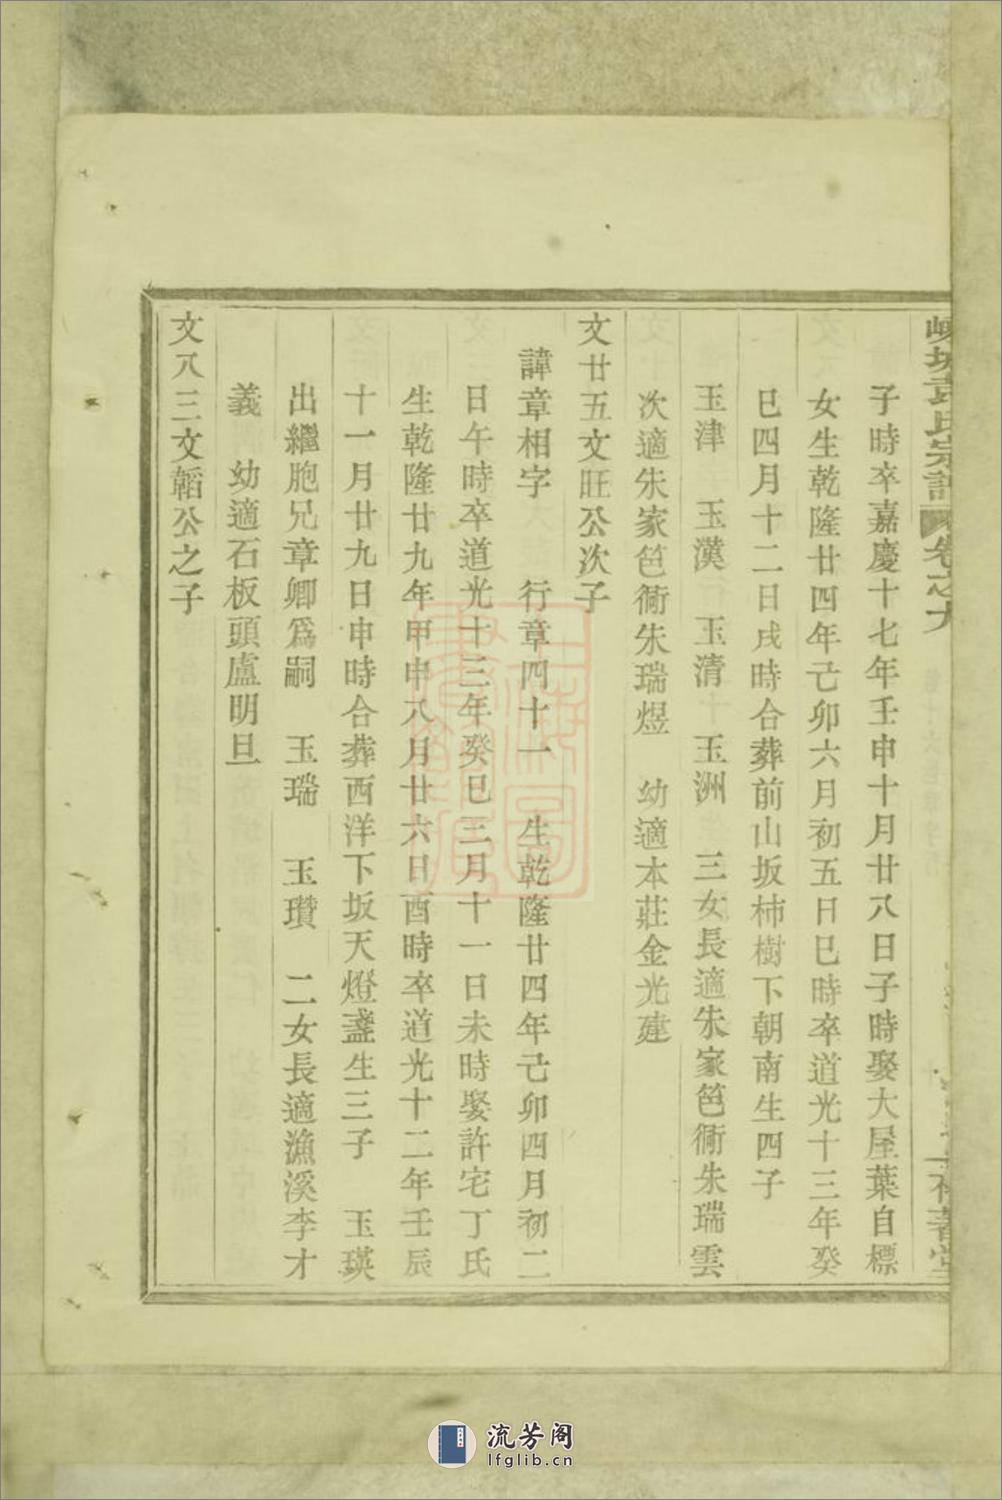 袁氏宗譜 卷之九
子時卒嘉慶十七年壬申十月廿八日子時娶大屋葉自標
女生乾隆廿四年己卯六月初五日巳時卒道光十三年癸
巳四月十二日戌時合葬前山坂柿樹下朝南生四子
玉津 玉漢 玉清 玉洲 三女長適朱家笆衕朱瑞雲
次適朱家笆衕朱瑞煜 幼適本莊金光建
文廿五文旺公次子
諱章相字 行章四十一 生乾隆廿四年己卯四月初二
日午時卒道光十三年癸巳三月十一日未時娶許宅丁氏
生乾隆廿九年甲申八月廿六日酉時卒道光十二年壬辰
十一月廿九日申時合葬西洋下坂天燈盞生三子 玉瑛
出繼胞兄章卿為嗣 玉瑞 玉瓚 二女長適漁溪李才
義 幼適石板頭盧明旦
文八三文韜公之子
流芳阁
lfglib.cn